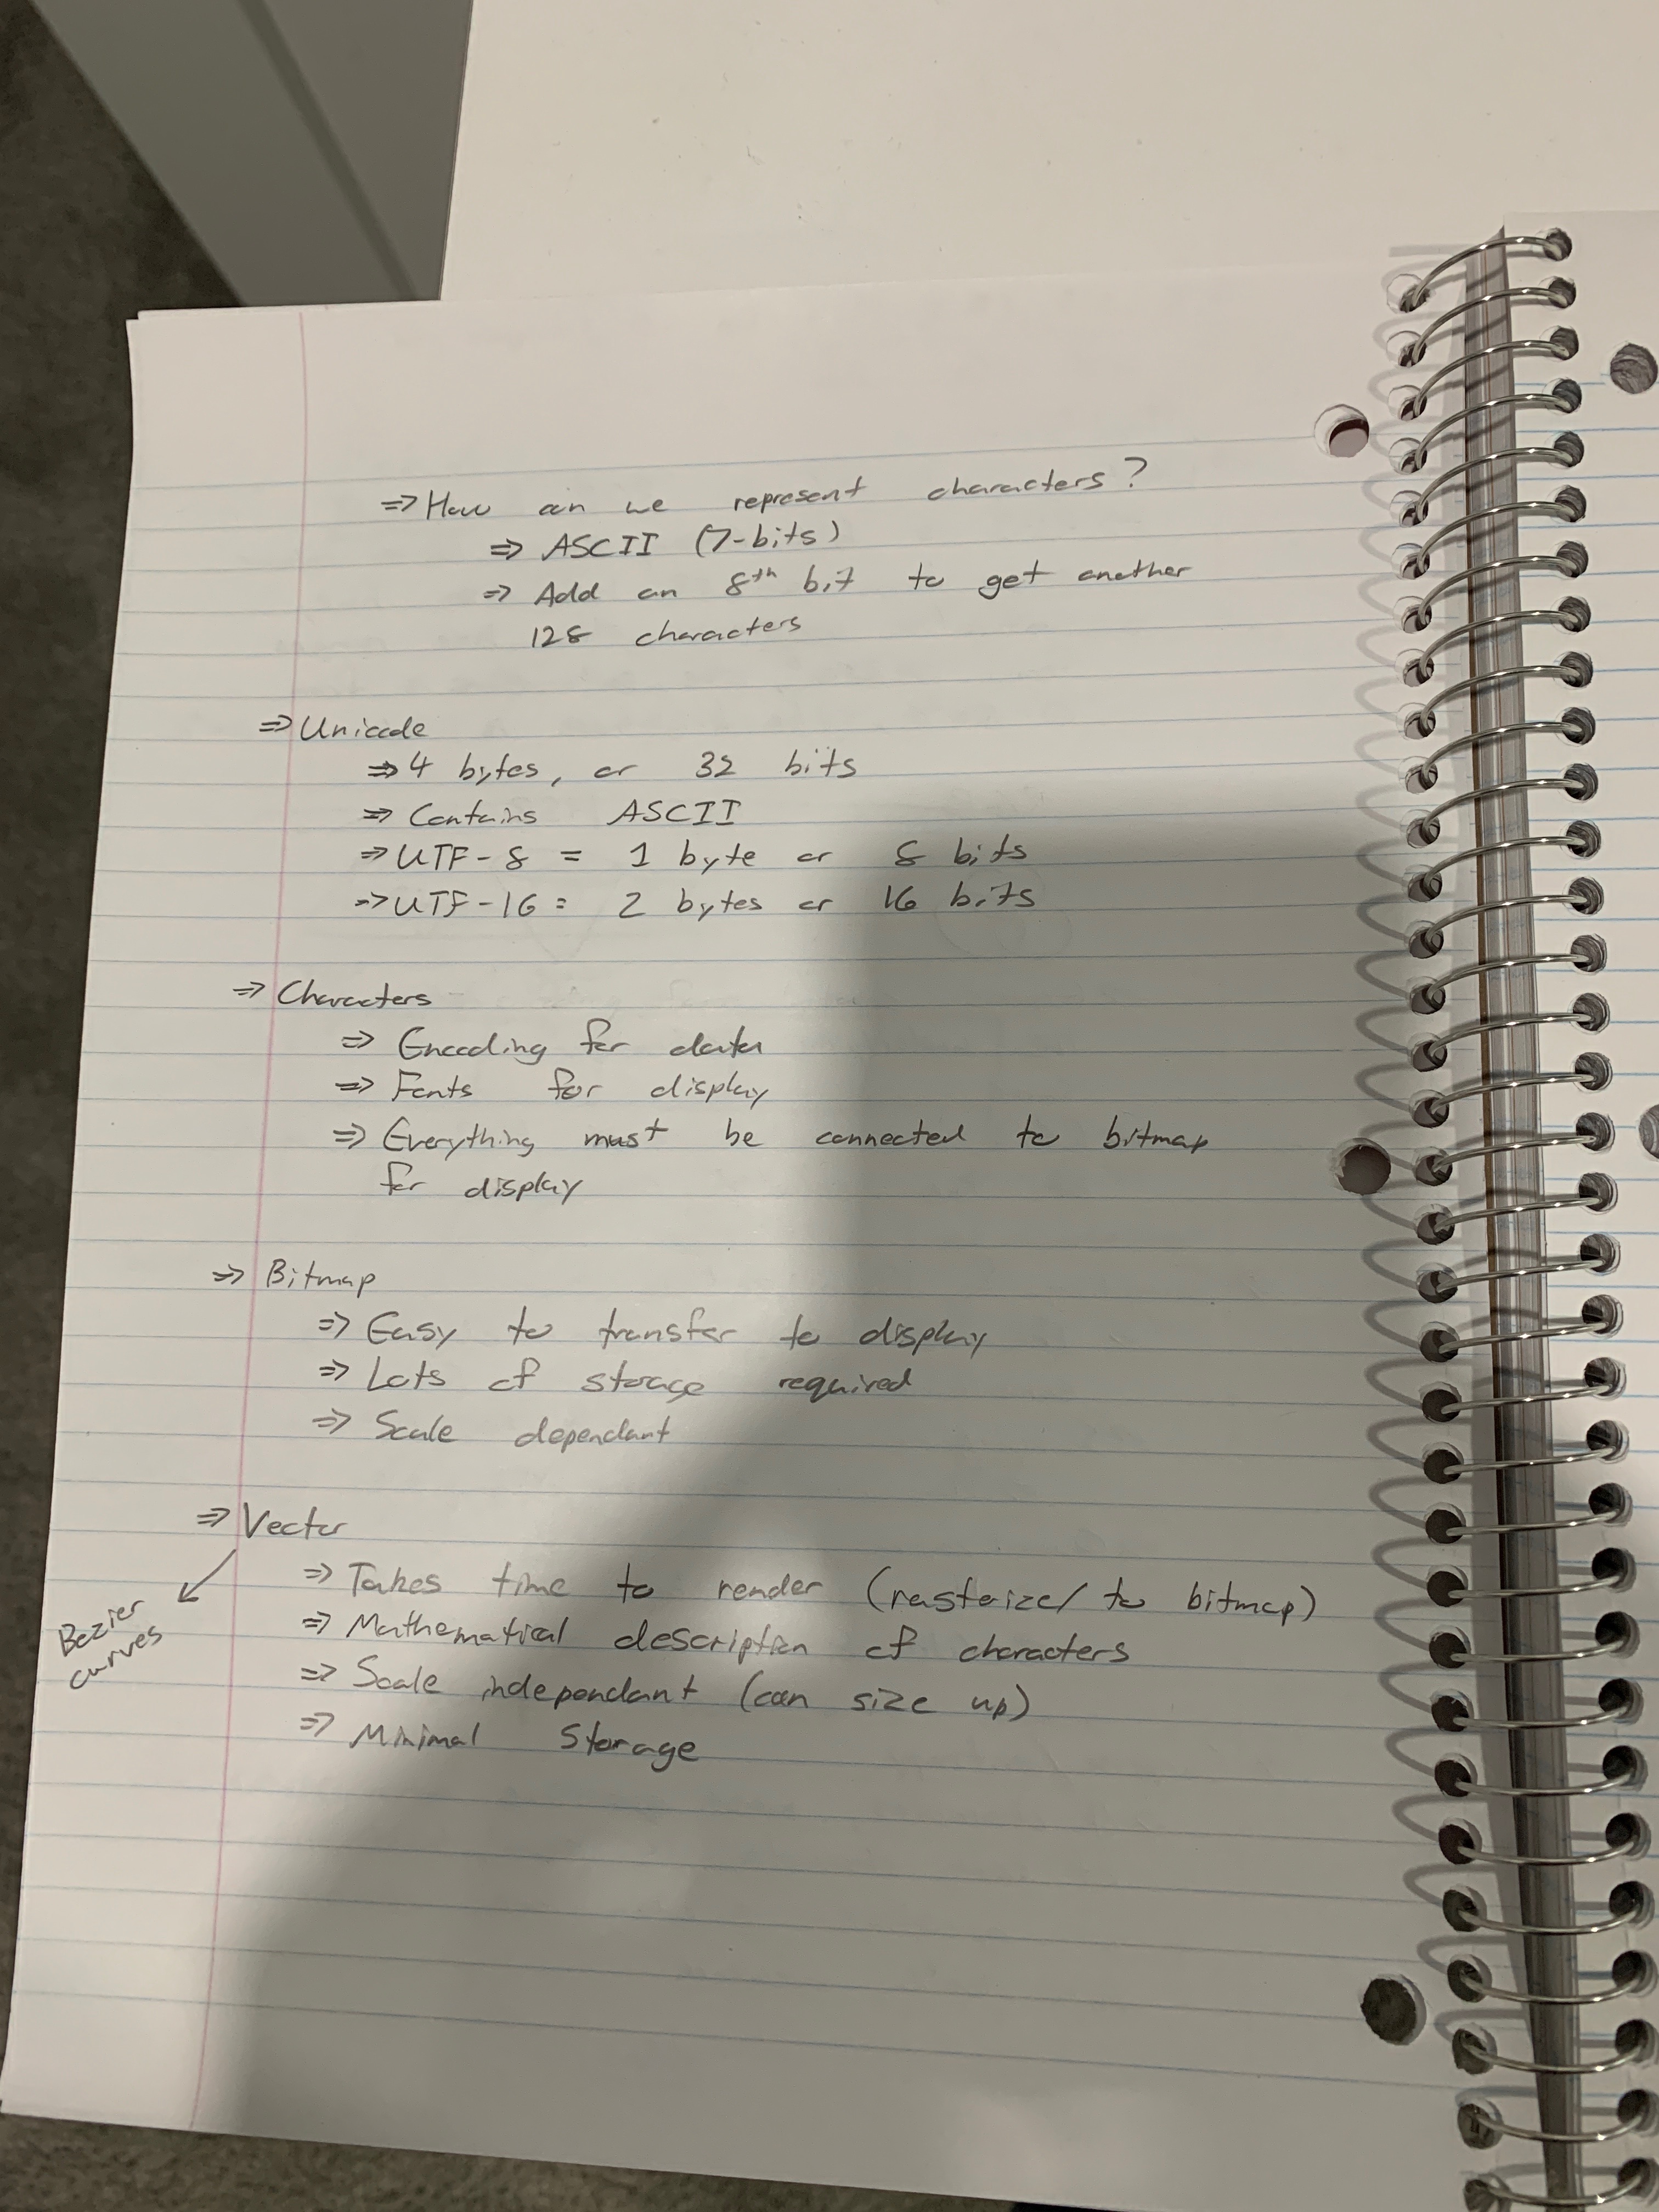 ⇒ How can we represent characters?
⇒ ASCII (7-bits)
⇒ Add an 8th bit to get another
128 characters
⇒ Unicode
⇒ 4 bytes, or 32 bits
⇒ Contains ASCII
⇒ UTF-8 = 1 byte or 8 bits
⇒ UTF-16 = 2 bytes or 16 bits
⇒ Characters
⇒ Encoding for data
⇒ Fonts for display
⇒ Everything must be connected to bitmap
for display
⇒ Bitmap
⇒ Easy to transfer to display
⇒ Lots of storage required
⇒ Scale dependant
⇒ Vector
⇒ Takes time to render (rasterize/ to bitmap)
Bezier
curves
⇒ Mathematical description of characters
⇒ Scale independant (can size up)
⇒ Minimal storage